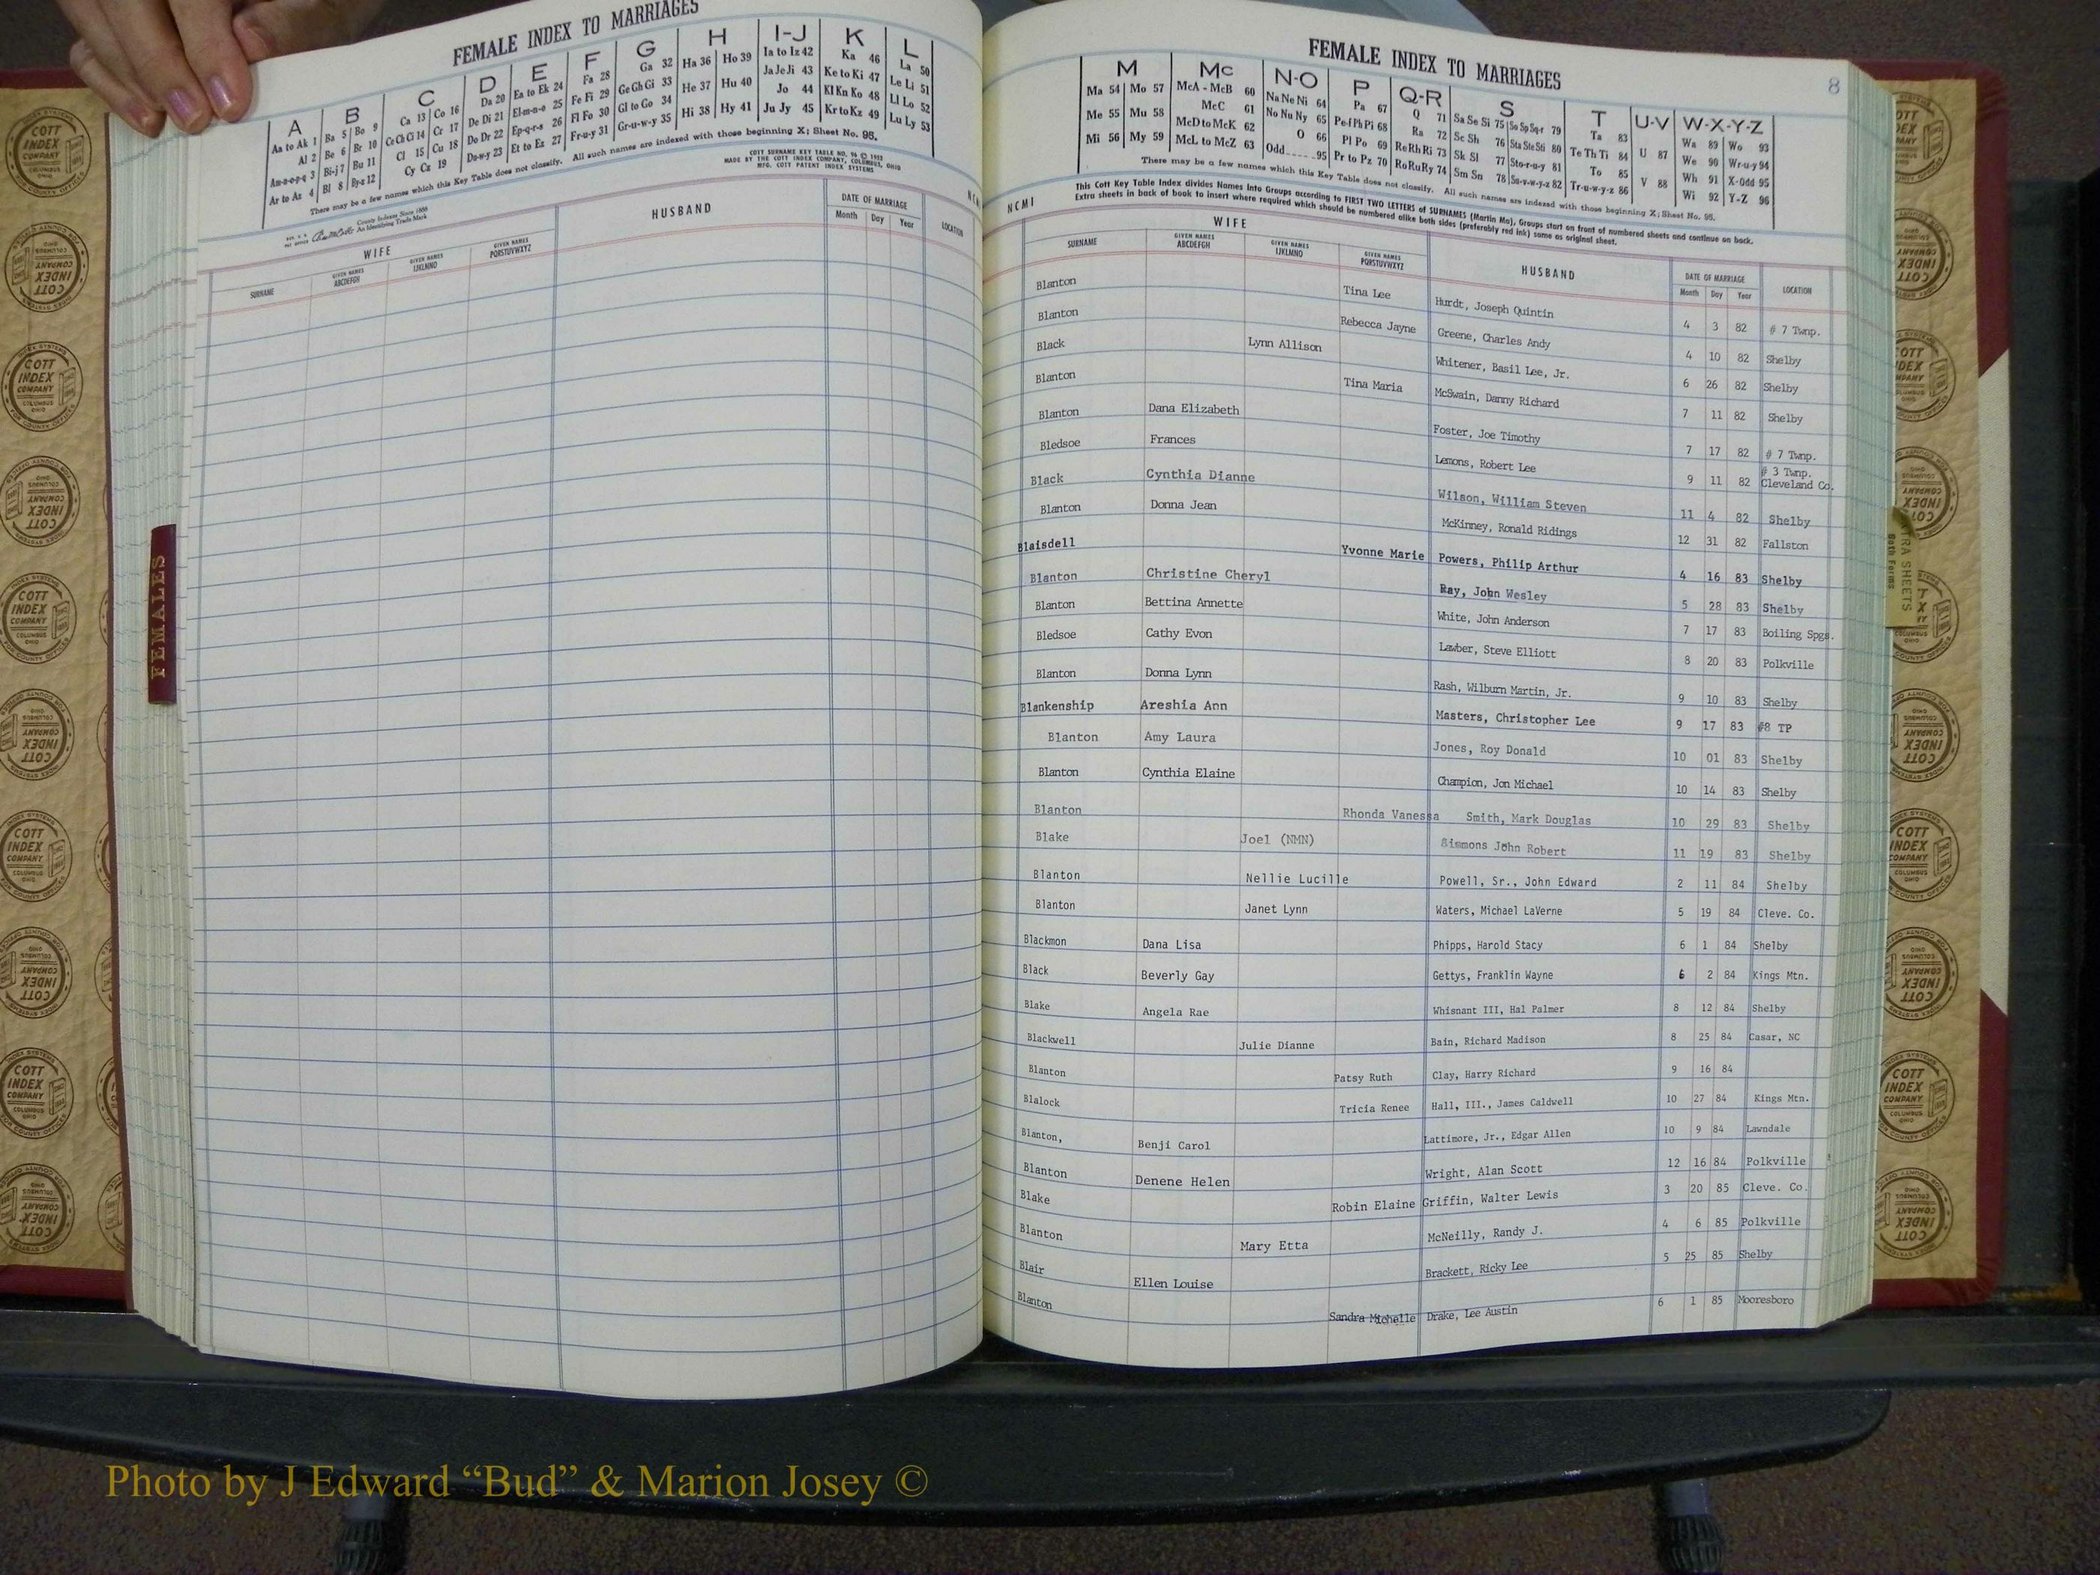 FEMALE INDEX TO MARRIAGES
A B C D E F G H I-J K L
Aa to Ak 1 Ba 5 Bo 9 Ca 13 Co 16 Da 20 Ea to Ek 24 Fa 28 Ga 32 Ha 36 Ho 39 Ia to Iz 42 Ka 46 La 50
Al 2 Be 6 Br 10 Ce Ch Ci 14 Cr 17 De Di 21 El-m-n-o 25 Fe Fi 29 Ge Gh Gi 33 He 37 Hu 40 Ja Je Ji 43 Ke to Ki 47 Le Li 51
Am-n-o-p-q 3 Bi-j 7 Bu 11 Cl 15 Cu 18 Do Dr 22 Ep-q-r-s 26 Fl Fo 30 Gl to Go 34 Hi 38 Hy 41 Jo 44 Kl Kn Ko 48 Ll Lo 52
Ar to Az 4 Bl 8 By-z 12 Cy Cz 19 Du-w-y 23 Et to Ez 27 Fr-u-y 31 Gr-u-w-y 35 Ju Jy 45 Kr to Kz 49 Lu Ly 53
There may be a few names which this Key Table does not classify. All such names are indexed with those beginning X; Sheet No. 95.
COTT SURNAME KEY TABLE NO. 96 © 1953
MADE BY THE COTT INDEX COMPANY, COLUMBUS, OHIO
MFG. COTT PATENT INDEX SYSTEMS
County Indexes Since 1888
An Identifying Trade Mark
WIFE HUSBAND DATE OF MARRIAGE LOCATION
SURNAME GIVEN NAMES ABCDEFGH GIVEN NAMES IJKLMNO GIVEN NAMES PQRSTUVWXYZ Month Day Year
FEMALES
FEMALE INDEX TO MARRIAGES 8
M Mc N-O P Q-R S T U-V W-X-Y-Z
Ma 54 Mo 57 McA - McB 60 Na Ne Ni 64 Pa 67 Q 71 Sa Se Si 75 So Sp Sq-r 79 Ta 83 U 87 Wa 89 Wo 93
Me 55 Mu 58 McC 61 No Nu Ny 65 Pe-f Ph Pi 68 Ra 72 Sc Sh 76 Sta Ste Sti 80 Te Th Ti 84 V 88 We 90 Wr-u-y 94
Mi 56 My 59 McD to McK 62 O 66 Pl Po 69 Re Rh Ri 73 Sk Sl 77 Sto-r-u-y 81 To 85 Wh 91 X-Odd 95
McL to McZ 63 Odd 95 Pr to Pz 70 Ro Ru Ry 74 Sm Sn 78 Su-v-w-y-z 82 Tr-u-w-y-z 86 Wi 92 Y-Z 96
There may be a few names which this Key Table does not classify. All such names are indexed with those beginning X; Sheet No. 95.
This Cott Key Table Index divides Names into Groups according to FIRST TWO LETTERS of SURNAMES (Martin Ma), Groups start on front of numbered sheets and continue on back.
Extra sheets in back of book to insert where required which should be numbered alike both sides (preferably red ink) same as original sheet.
NCMI
WIFE HUSBAND DATE OF MARRIAGE LOCATION
SURNAME GIVEN NAMES ABCDEFGH GIVEN NAMES IJKLMNO GIVEN NAMES PQRSTUVWXYZ Month Day Year
Blanton Tina Lee Hurdt, Joseph Quintin 4 3 82 # 7 Twnp.
Blanton Rebecca Jayne Greene, Charles Andy 4 10 82 Shelby
Black Lynn Allison Whitener, Basil Lee, Jr. 6 26 82 Shelby
Blanton Tina Maria McSwain, Danny Richard 7 11 82 Shelby
Blanton Dana Elizabeth Foster, Joe Timothy 7 17 82 # 7 Twnp.
Bledsoe Frances Lemons, Robert Lee 9 11 82 # 3 Twnp. Cleveland Co.
Black Cynthia Dianne Wilson, William Steven 11 4 82 Shelby
Blanton Donna Jean McKinney, Ronald Ridings 12 31 82 Fallston
Blaisdell Yvonne Marie Powers, Philip Arthur 4 16 83 Shelby
Blanton Christine Cheryl Ray, John Wesley 5 28 83 Shelby
Blanton Bettina Annette White, John Anderson 7 17 83 Boiling Spgs.
Bledsoe Cathy Evon Lawber, Steve Elliott 8 20 83 Polkville
Blanton Donna Lynn Rash, Wilburn Martin, Jr. 9 10 83 Shelby
Blankenship Areshia Ann Masters, Christopher Lee 9 17 83 #8 TP
Blanton Amy Laura Jones, Roy Donald 10 01 83 Shelby
Blanton Cynthia Elaine Champion, Jon Michael 10 14 83 Shelby
Blanton Rhonda Vanessa Smith, Mark Douglas 10 29 83 Shelby
Blake Joel (NMN) Simmons John Robert 11 19 83 Shelby
Blanton Nellie Lucille Powell, Sr., John Edward 2 11 84 Shelby
Blanton Janet Lynn Waters, Michael LaVerne 5 19 84 Cleve. Co.
Blackmon Dana Lisa Phipps, Harold Stacy 6 1 84 Shelby
Black Beverly Gay Gettys, Franklin Wayne 6 2 84 Kings Mtn.
Blake Angela Rae Whisnant III, Hal Palmer 8 12 84 Shelby
Blackwell Julie Dianne Bain, Richard Madison 8 25 84 Casar, NC
Blanton Patsy Ruth Clay, Harry Richard 9 16 84
Blalock Tricia Renee Hall, III., James Caldwell 10 27 84 Kings Mtn.
Blanton, Benji Carol Lattimore, Jr., Edgar Allen 10 9 84 Lawndale
Blanton Denene Helen Wright, Alan Scott 12 16 84 Polkville
Blake Robin Elaine Griffin, Walter Lewis 3 20 85 Cleve. Co.
Blanton Mary Etta McNeilly, Randy J. 4 6 85 Polkville
Blair Ellen Louise Brackett, Ricky Lee 5 25 85 Shelby
Blanton Sandra Michelle Drake, Lee Austin 6 1 85 Mooresboro
Photo by J Edward “Bud” & Marion Josey ©